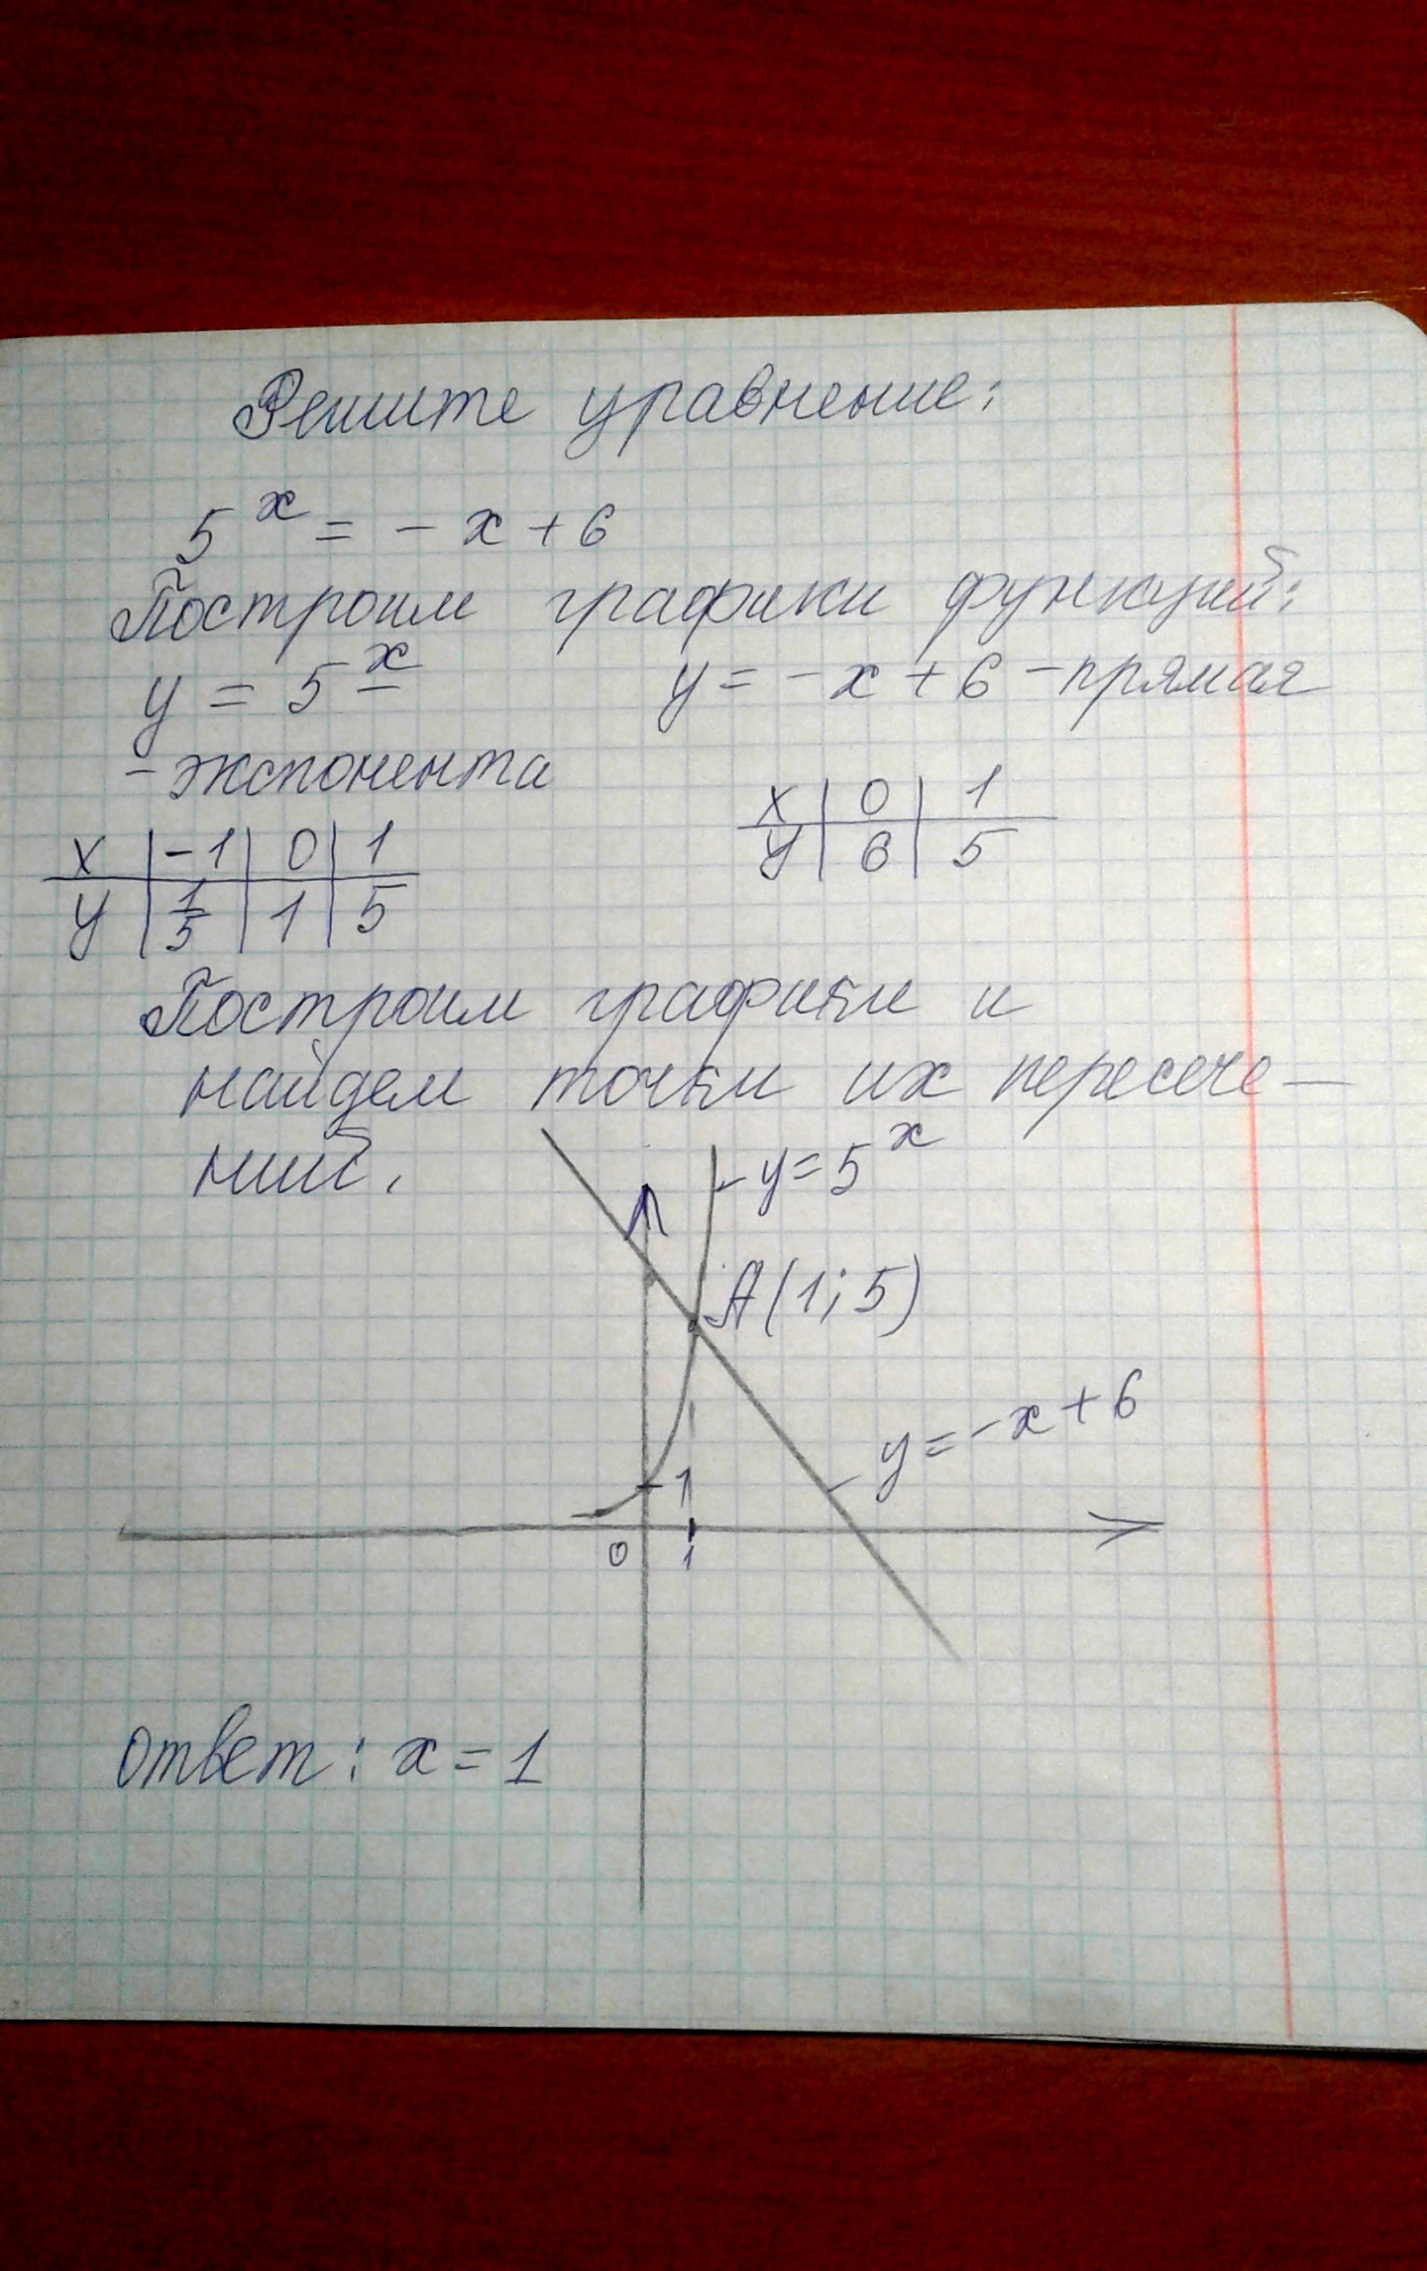 Решите уравнение:
5^x = - x + 6
Построим графики функций:
y = 5^x y = - x + 6 - прямая
- экспонента
x | 0 | 1
y | 6 | 5
x | -1 | 0 | 1
y | 1/5 | 1 | 5
Построим графики и
найдем точки их пересече-
ний.
y = 5^x
A(1; 5)
y = -x + 6
1
0 1
ответ: x = 1